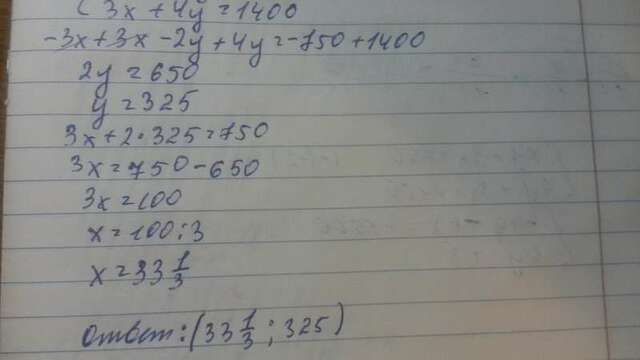 ( 3x + 4y = 1400
-3x+3x -2y+4y=-750+1400
2y = 650
y = 325
3x+2·325=750
3x=750-650
3x=100
x=100:3
x=33 1/3
Ответ: (33 1/3; 325)